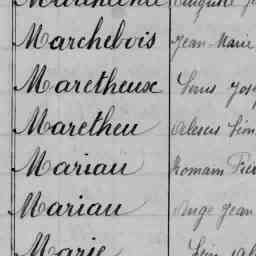 Marchebois Jean Marie
Maretheux Louis Jos
Maretheu Alexis Léon
Mariau Romain Pier
Mariau Ange Jean
Marie